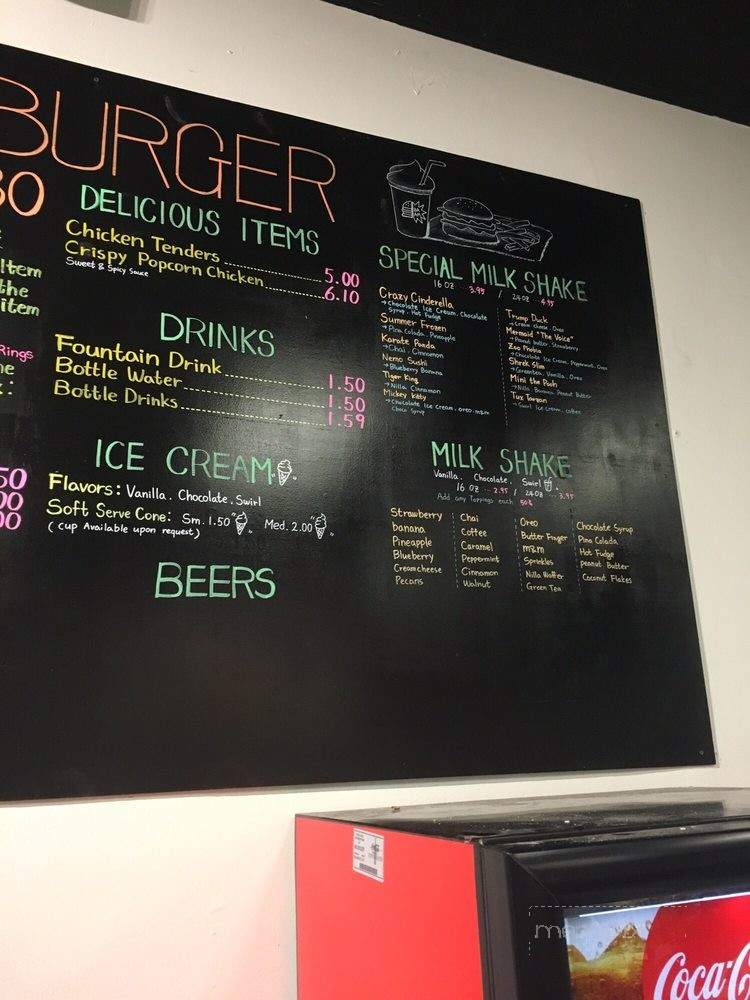 BURGER
30
Item
the
item
Rings
DELICIOUS ITEMS
Chicken Tenders 5.00
Crispy Popcorn Chicken 6.10
Sweet & Spicy Sauce
DRINKS
Fountain Drink 1.50
Bottle Water 1.50
Bottle Drinks 1.59
ICE CREAM
Flavors: Vanilla . Chocolate . Swirl
Soft Serve Cone: Sm. 1.50 Med. 2.00
( Cup Available upon request )
BEERS
SPECIAL MILK SHAKE
16 oz ... 3.95 / 24 oz ... 4.95
Crazy Cinderella
→ Chocolate Ice Cream . Chocolate
Syrup . Hot Fudge
Summer Frozen
→ Pina Colada . Pineapple
Karate Panda
→ Chai . Cinnamon
Nemo Sushi
→ Blueberry Banana
Tiger King
→ Nilla . Cinnamon
Mickey Kitty
→ Chocolate Ice Cream . Oreo . m&m
Choco Syrup
Trump Duck
→ Cream cheese . Oreo
Mermaid "The Voice"
→ Peanut butter . Strawberry
Zoo Phobia
→ Chocolate Ice Cream . Peppermint . Oreo
Shrek Slim
→ Greentea . Vanilla . Oreo
Mini the Pooh
→ Nilla . Banana . Peanut Butter
Tux Tarzan
→ Swirl Ice Cream . Coffee
MILK SHAKE
Vanilla . Chocolate . Swirl
16 oz ... 2.95 / 24 oz ... 3.95
Add any Toppings each 50¢
Strawberry
banana
Pineapple
Blueberry
Creamcheese
Pecans
Chai
Coffee
Caramel
Peppermint
Cinnamon
Walnut
Oreo
Butter Finger
m&m
Sprinkles
Nilla Waffer
Green Tea
Chocolate Syrup
Pina Colada
Hot Fudge
peanut Butter
Coconut Flakes
50
00
00
Coca-C